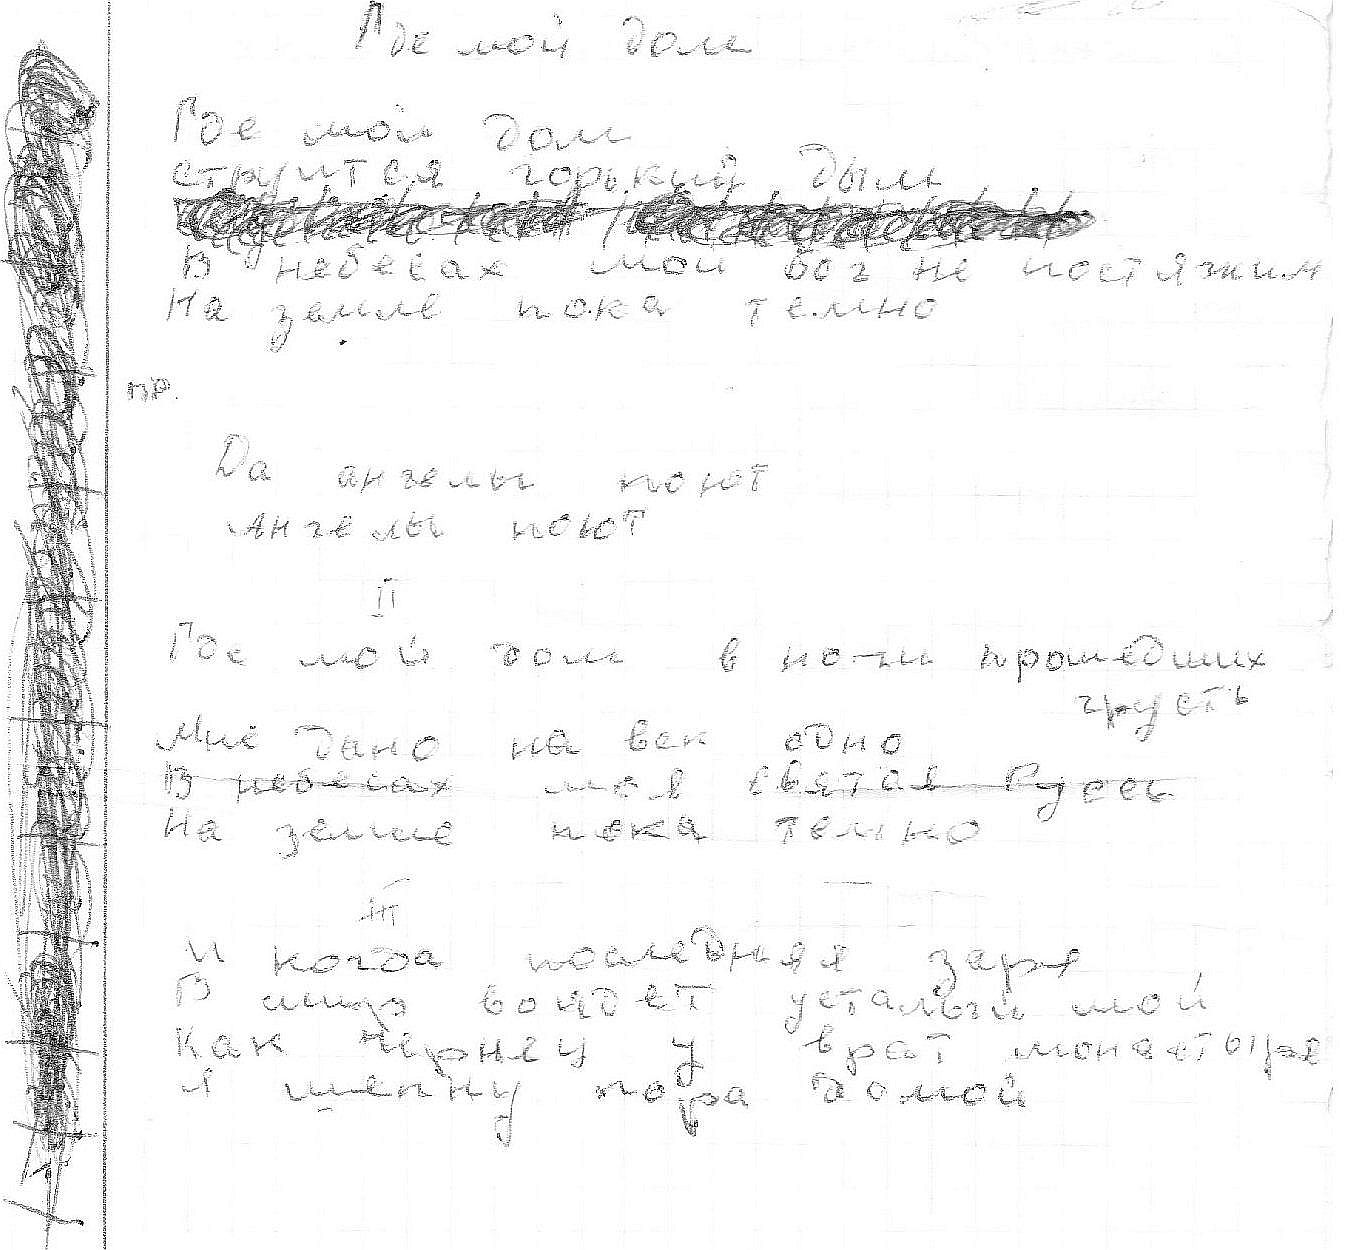 Где мой дом
Где мой дом
струится горький дым
В небесах мой бог не постяжим
На земле пока темно
пр.
Да ангелы поют
Ангелы поют
II
Где мой дом в ночи прошедших
грусть
Мне дано на век одно
В небесах моя святая Русь
На земле пока темно
III
И когда последняя заря
В мир войдет усталый мой
Как чернец у врат монастыря
Я шепну пора домой